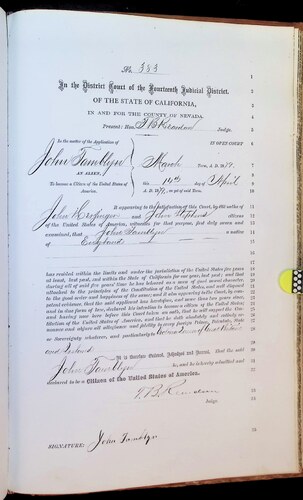 No. 383
In the District Court of the Fourteenth Judicial District,
OF THE STATE OF CALIFORNIA,
IN AND FOR THE COUNTY OF NEVADA.
Present: Hon. T. B. Reardan Judge.
In the matter of the Application of
John Tamblyn
AN ALIEN,
To become a Citizen of the United States of America.
IN OPEN COURT
March Term, A. D. 1879.
this 14th day of April
A. D. 1879, as yet of said Term.
It appearing to the satisfaction of this Court, by the oaths of
John and John citizens
of the United States of America, witnesses for that purpose, first duly sworn and
examined, that John Tamblyn a native
of England
has resided within the limits and under the jurisdiction of the United States for five years
at least, last past, and within the State of California for one year, last past; and that
during all of said five years' time he has behaved as a man of good moral character,
attached to the principles of the Constitution of the United States, and well disposed
to the good order and happiness of the same; and it also appearing to the Court, by com-
petent evidence, that the said applicant has heretofore, and more than two years since,
and in due form of law, declared his intention to become a citizen of the United States;
and having now here before this Court taken an oath, that he will support the Con-
stitution of the United States of America, and that he doth absolutely and entirely re-
nounce and abjure all allegiance and fidelity to every foreign Prince, Potentate, State
or Sovereignty whatever, and particularly to Victoria Queen of Great Britain
and Ireland
It is therefore Ordered, Adjudged and Decreed, that the said
John Tamblyn be, and he is hereby admitted and
declared to be a Citizen of the United States of America.
T. B. Reardan
Judge.
SIGNATURE: John Tamblyn